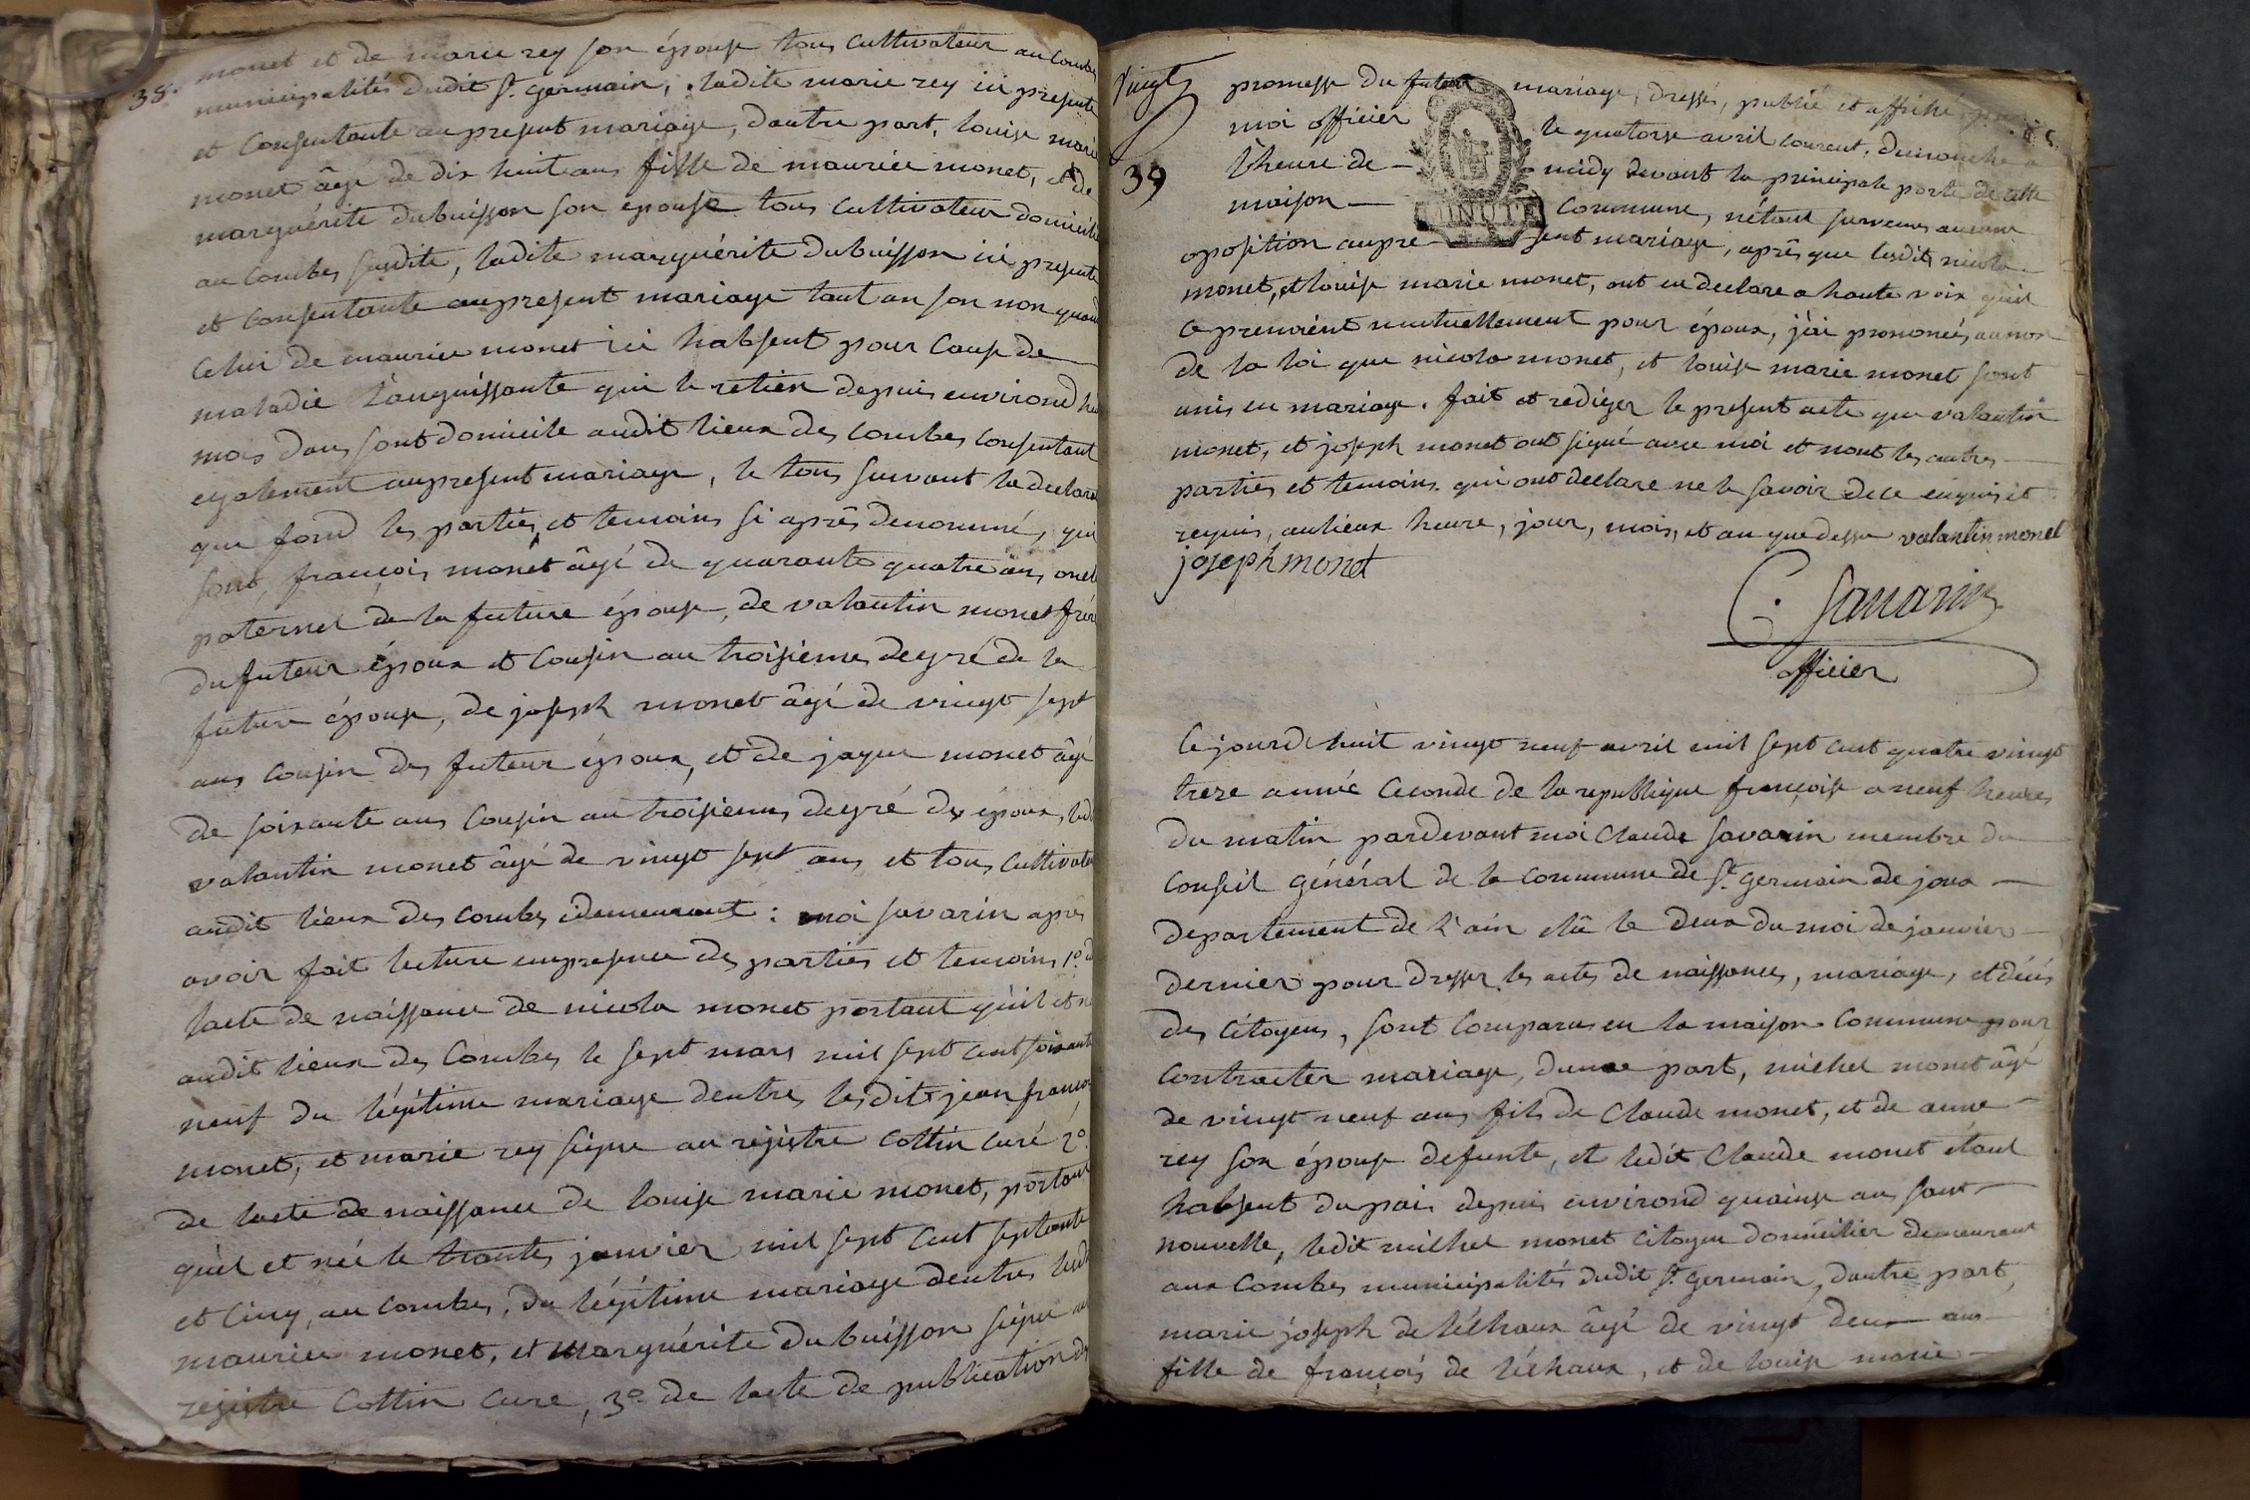 38.
monet et de marie rey son épouse tous cultivateur au combes
municipalités dudit St. germain, ladite marie rey ici presente
et consentante au present mariage, dautre part, louise marie
monet âge de dix huit ans fille de mauriée monet, et de
marguérite dubuisson son epouse tous cultivateur domicilié
au combes susdite, ladite marguérite dubuisson ici presente
et consentante aupresent mariage tant an son non quand
celui de mauriee monet ici habsent pour cause de
maladie l'anguissante qui le retien depuis environd
mois dans sont domicile audit lieux des combes consentant
egalement aupresent mariage, le tous survant la declara
que fond les parties et temoins si après denommé, qui
sont, françois monet âgé de quarante quatre ans oncle
paternel de la future épouse, de valantin monet frère
du futeur époux et cousin au troisiéme degré de la
future épouse, de joseph monet âgé de vingt sept
ans cousin des futeur époux, et de jaque monet âgé
de soixante ans cousin au troisieme degré des époux, ledi
valantin monet âgé de vingt sept ans et tous cultivateu
audit lieux des combes demeurant : moi savarin après
avoir fait lecture enpresence des parties et temoins 1º. d
lacte de naissance de nicola monet portant qu'il et n
audit lieux des Combes le sept mars mil sept cent soixante
neuf du légitime mariage dentres lesdit jean françoi
monet, et marie rey signe au rejistre Cottin curé 2º.
de lacte de naissance de louise marie monet, portant
quél et néé le trante janvier mil sept cent septante
et cinq, au combes, du légitime mariage dentres led
mauriée monet, et marguérite dubuisson signe au
registre Cottin Cure, 3º. de lacte de publication de
Vingt
39
promesse du futeur mariage, dressé, publié et affiché
moi officier le quatorse avril courent, dimanche a
l'heure de - midy devant la principale porte de cette
maison - commune, nétant survenus aucune
MINUTE
oposition aupre- sent mariage, après que lesdits nicola
monet, et louise marie monet, ont eu declare a haute voix quil
ce prenoient mutuellement pour époux, j'ai prononcés au nom
de la loi que nicola monet, et louise marie monet sont
unis en mariage. fait et rediger le present acte que valantin
monet, et joseph monet ont signé avec moi et nont les autres
parties et temoins qui ont declare ne le savoir de ce enquis et
requis, aulieux heure, jour, mois, et an que dessu valantin monet
joseph monet
C. Savarin
officier
Ce jourdhuit vingt neuf avril mil sept cent quatre vingt
treze année Ceconde de la republique françoise a neuf heures
du matin pardevant moi Claude Savarin membre du
conseil général de la commune de St. germain de joux
departement de l'ain elû le deux du moi de janvier
dernier pour dresser les actes de naissances, mariage, et décès
des Citoyens, sont comparu en la maison commune pour
contracter mariage, dunne part, michel monet âgé
de vingt neuf ans fils de Claude monet, et de anne
rey son épouse defunte, et ledit Claude monet étant
habsent du pais depuis environd quainse ans sans
nouvelle, ledit michel monet citoyen domicilier demeurant
aux Combes municipalités dudit St. germain, dautre part,
marie joseph de léthaux âgé de vingt deux ans
fille de françois de léthaux, et de louise marie